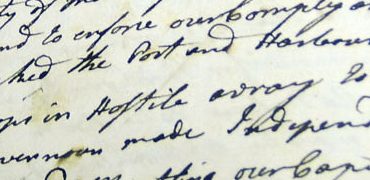 ty of the
nd to ensure our Comply
ked the Port and Harbour
ops in Hostile array to
vernour made Independ
our Cap